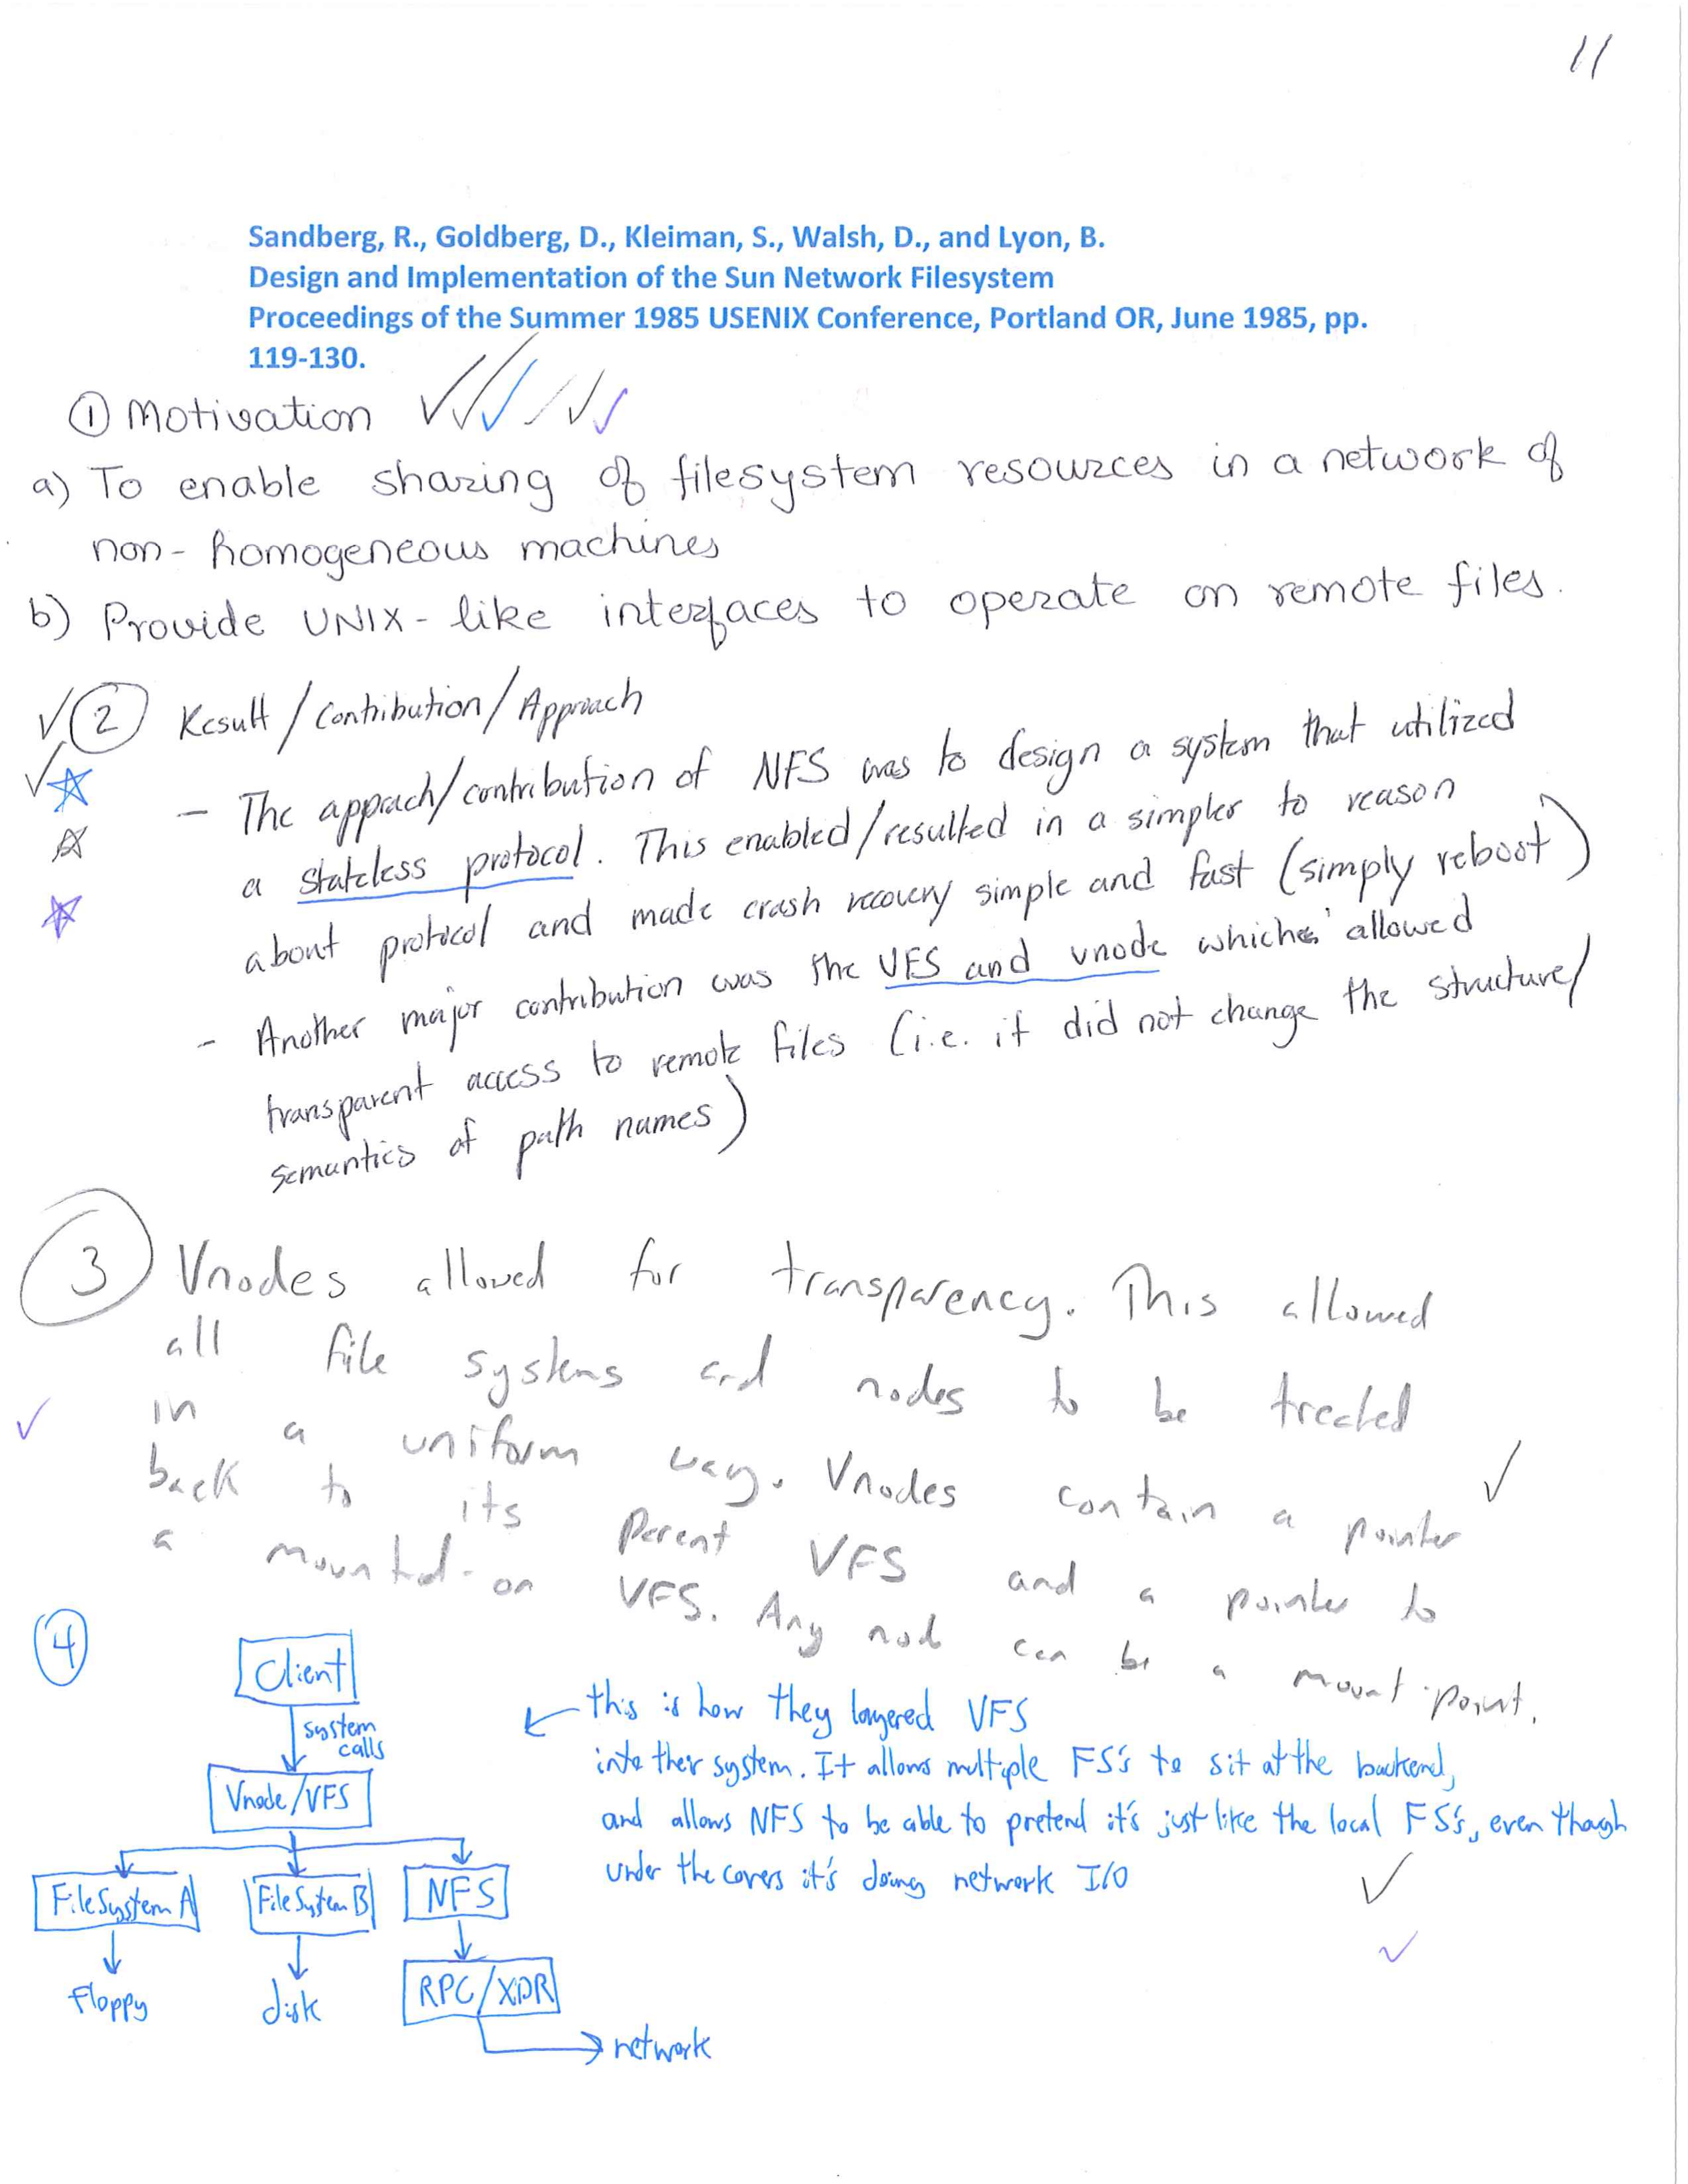 11
Sandberg, R., Goldberg, D., Kleiman, S., Walsh, D., and Lyon, B.
Design and Implementation of the Sun Network Filesystem
Proceedings of the Summer 1985 USENIX Conference, Portland OR, June 1985, pp.
119-130.
① Motivation
a) To enable sharing of filesystem resources in a network of
non-homogeneous machines
b) Provide UNIX-like interfaces to operate on remote files.
② Result/Contribution/Approach
- The apprach/contribution of NFS was to design a system that utilized
a stateless protocol. This enabled/resulted in a simpler to reason
about protocol and made crash recovery simple and fast (simply reboot)
- Another major contribution was the VFS and vnode which allowed
transparent access to remote files (i.e. it did not change the structure/
semantics of path names)
③ Vnodes allowed for transparency. This allowed
all file systems and nodes to be treated
in a uniform way. Vnodes contain a pointer
back to its parent VFS and a pointer to
a mounted-on VFS. Any node can be a mount point.
④
Client
system
calls
Vnode/VFS
FileSystem A
FileSystem B
NFS
Floppy
disk
RPC/XDR
network
← this is how they layered VFS
into their system. It allows multiple FS's to sit at the backend,
and allows NFS to be able to pretend it's just like the local FS's, even though
under the covers it's doing network I/O